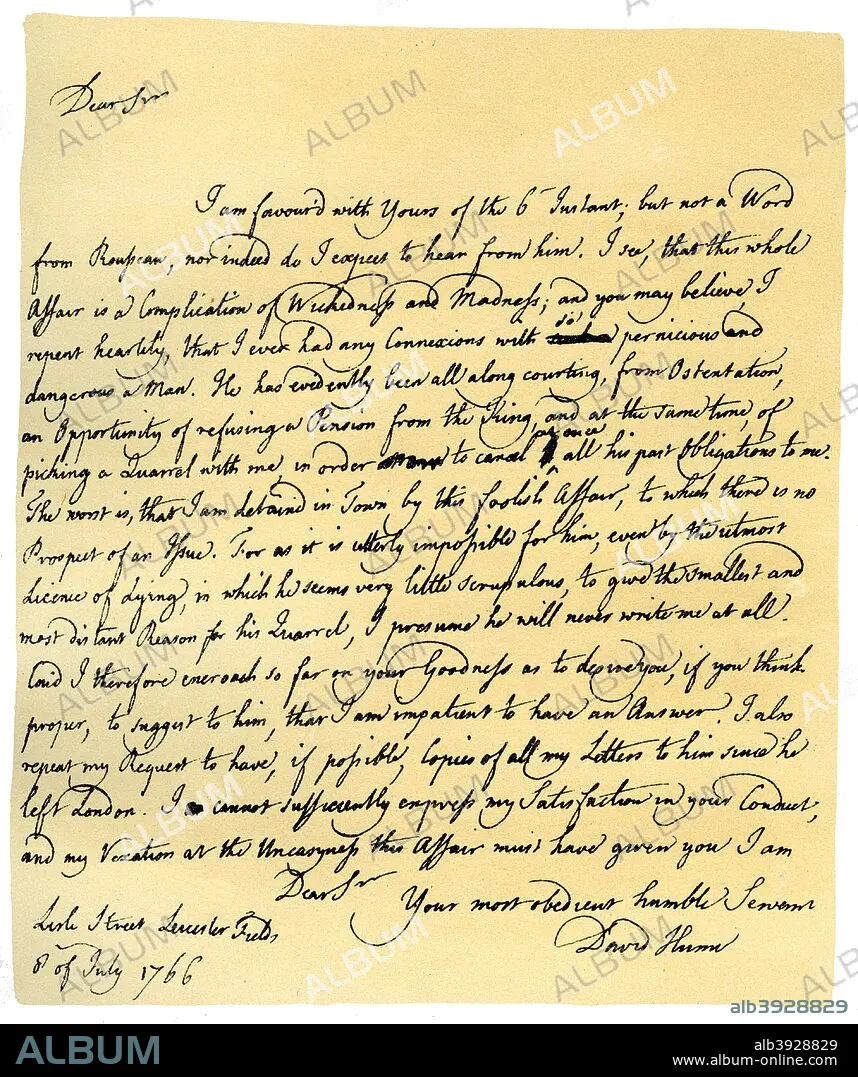 Dear Sir
I am favour'd with Yours of the 6th Instant; but not a Word
from Rousseau, nor indeed do I expect to hear from him. I see that this whole
Affair is a Complication of Wickedness and Madness; and you may believe, I
repent heartily, that I ever had any Connexions with so pernicious and
dangerous a Man. He has evidently been all along courting, from Ostentation,
an Opportunity of refusing a Pension from the King, and at the same time, of
picking a Quarrel with me, in order to cancel at once all his past Obligations to me.
The worst is, that I am detaind in Town by this foolish Affair, to which there is no
Prospect of an Issue. For as it is utterly impossible for him, even by the utmost
Licence of Lying, in which he seems very little scrupulous, to give the smallest and
most distant Reason for his Quarrel, I presume he will never write me at all.
Coud I therefore encroach so far on your Goodness as to desire you, if you think
proper, to suggest to him, that I am impatient to have an Answer. I also
repeat my Request to have, if possible, Copies of all my Letters to him since he
left London. I cannot sufficiently express my Satisfaction in your Conduct,
and my Vexation at the Uneasyness this Affair must have given you I am
Dear Sir
Your most obedient humble Servant
David Hume
Lisle Street Leicester Fields
8th of July 1766
ALBUM
alb3928829
ALBUM
alb3928829
www.album-online.com